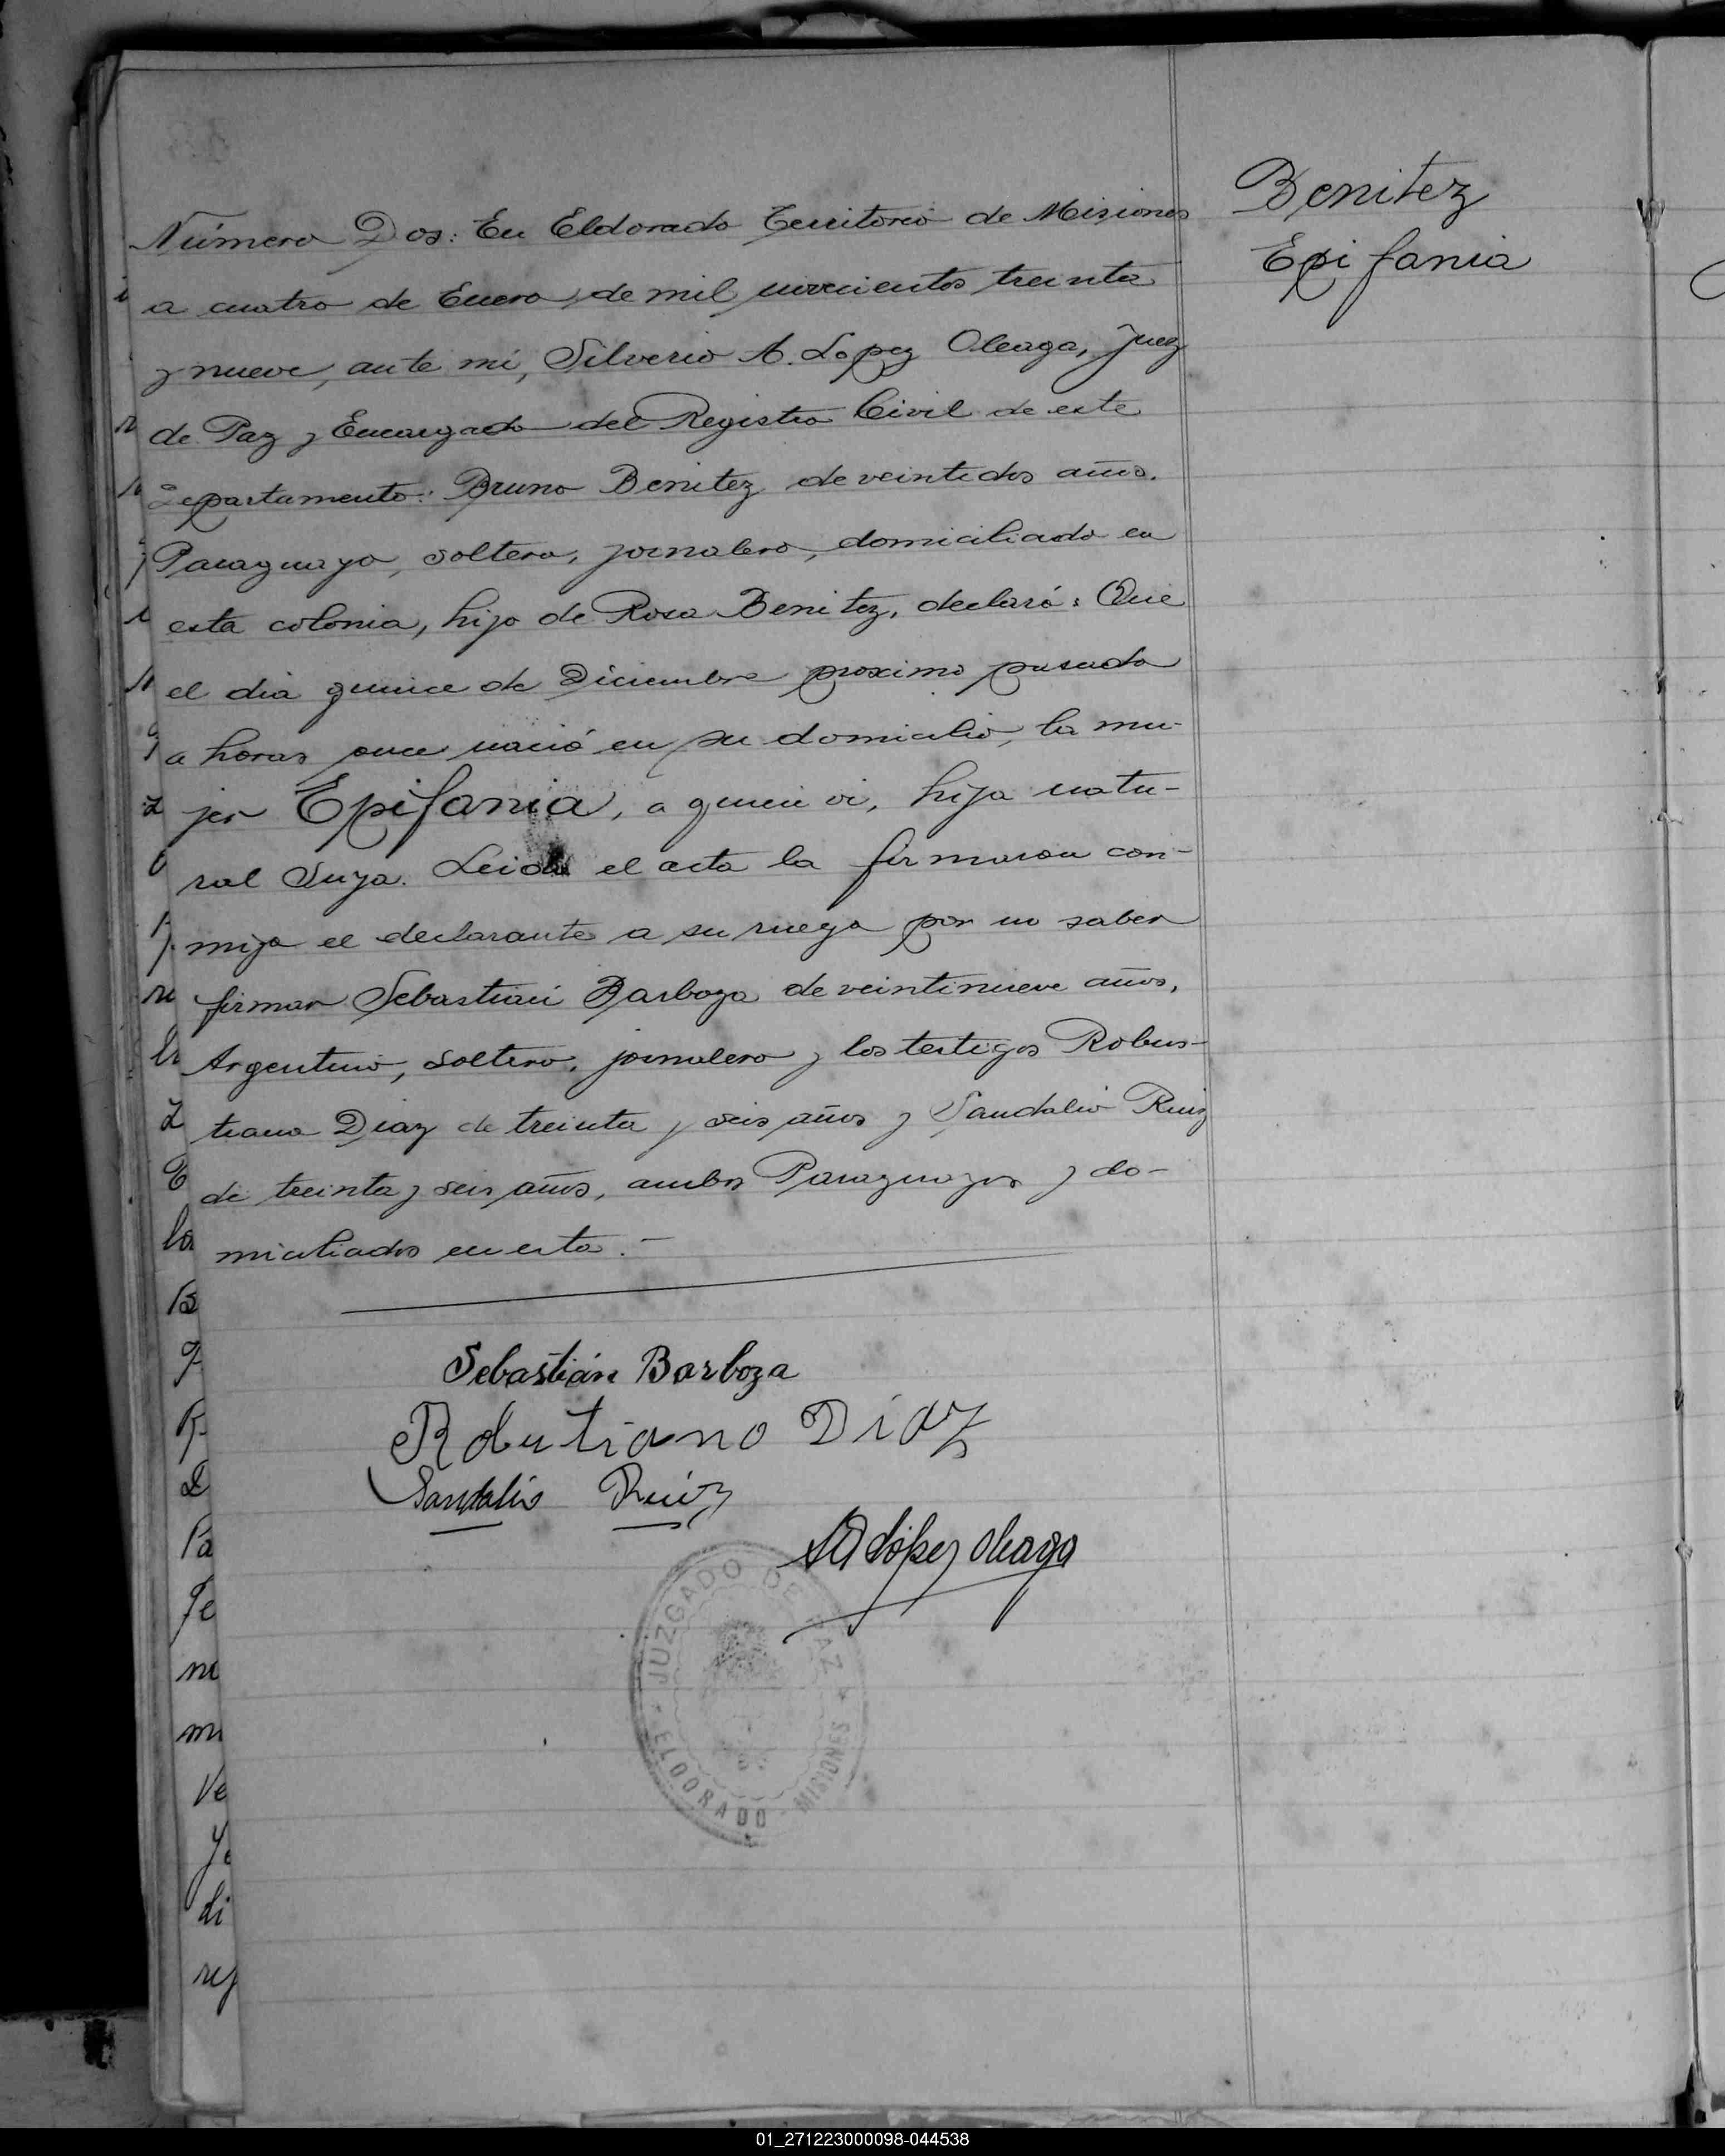 Benitez
Epifania
Número Dos: En Eldorado Territorio de Misiones
a cuatro de Enero de mil novecientos treinta
y nueve, ante mi, Silverio A. Lopez Oleaga, Juez
de Paz y Encargado del Registro Civil de este
Departamento: Bruno Benitez de veintidos años.
Paraguayo, soltero, jornalero, domiciliado en
esta colonia, hijo de Rosa Benitez, declaró: Que
el dia quince de Diciembre proximo pasado
a horas once nació en su domicilio, la mu-
jer Epifania, a quien vi, hija natu-
ral suya. Leida el acta la firmaron con-
migo el declarante a su ruego por no saber
firmar Sebastian Barboza de veintinueve años,
Argentino, soltero, jornalero y los testigos Robus-
tiano Diaz de treinta y seis años y Sandalio Ruiz
de treinta y seis años, ambos Paraguayos y do-
miciliados en esta.-
Sebastián Barboza
Robutiano Diaz
Sandalio Ruiz
SA López Oleaga
JUZGADO DE PAZ
ELDORADO MISIONES
01_271223000098-044538